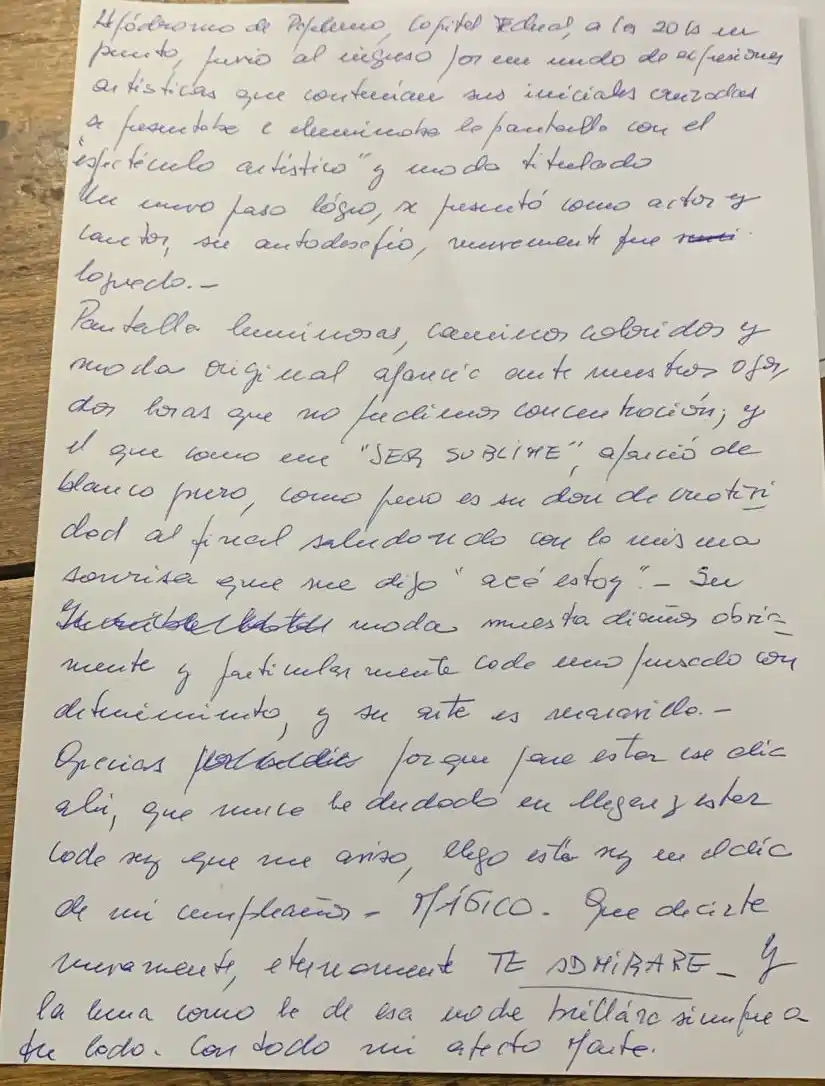 Hipódromo de Palermo, Capital Federal, a las 20 hs en
punto, previo al ingreso por un mundo de expresiones
artísticas que contenian sus iniciales cruzadas
se presentaba e eluminaba la pantalla con el
"espectáculo artístico" y moda titulado
Un nuevo paso lógro, se presentó como actor y
cantor, su autodesafío, nuevamente fue
logrado.-
Pantalla luminosas, caminos coloridos y
moda original aparecía ante nuestros ojos,
dos horas que no perdimos concentración; y
el que como un "SER SUBLIME", apareció de
blanco puro, como puro es su don de creativi
dad al final saludando con la misma
sonrisa que me dijo "acá estoy".- Su
moda muestra diseños obvia-
mente y particularmente cada uno pensado con
detenimiento, y su arte es maravilla.-
Gracias porque para estar ese día
ahí, que nunca he dudado en llegar y estar
cada vez que me aviso, llego esta vez en el día
de mi cumpleaños - MÁGICO. Que decirte
nuevamente, eternamente TE ADMIRARE - Y
la luna como la de esa noche brillára siempre a
tu lado. Con todo mi afecto Marte.